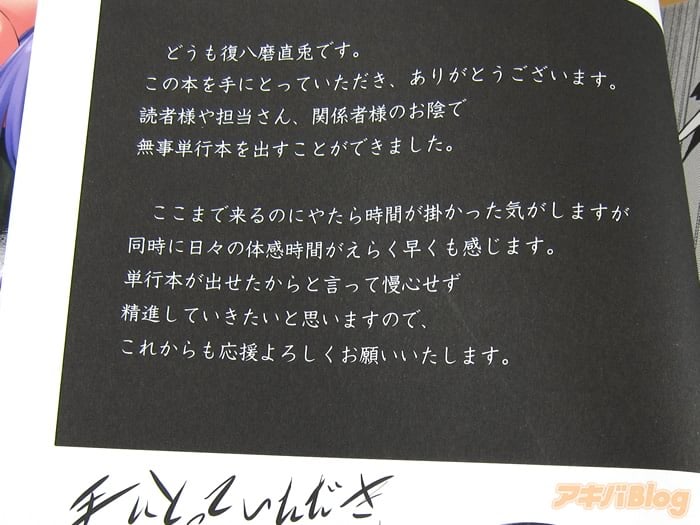 どうも復八磨直兎です。
この本を手にとっていただき、ありがとうございます。
読者様や担当さん、関係者様のお陰で
無事単行本を出すことができました。
ここまで来るのにやたら時間が掛かった気がしますが
同時に日々の体感時間がえらく早くも感じます。
単行本が出せたからと言って慢心せず
精進していきたいと思いますので、
これからも応援よろしくお願いいたします。
手にとっていただき
アキバBlog